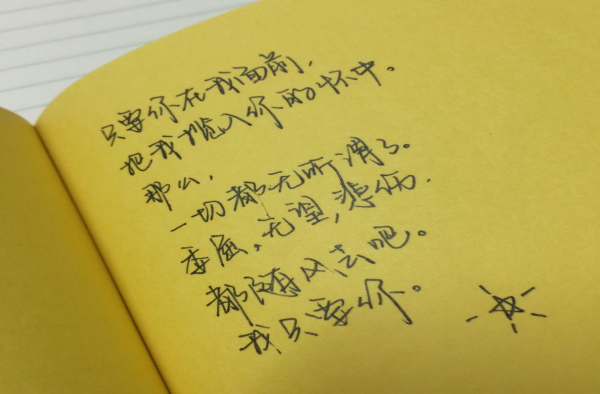 只要你在我面前，
把我揽入你的怀中。
那么，
一切都无所谓了。
委屈，无望，悲伤.
都随风去吧。
我只要你。